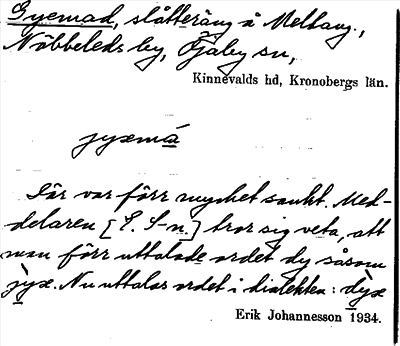 Gyemad, slåtteräng å Mellang.,
Nöbbeleds by, Öjaby sn,
Kinnevalds hd, Kronobergs län.
jyxmá
Där var förr mycket sankt. Med-
delaren [E. S-n.] tror sig veta, att
man förr uttalade ordet dy såsom
jyx. Nu uttalas ordet i dialekten: dyx
Erik Johannesson 1934.